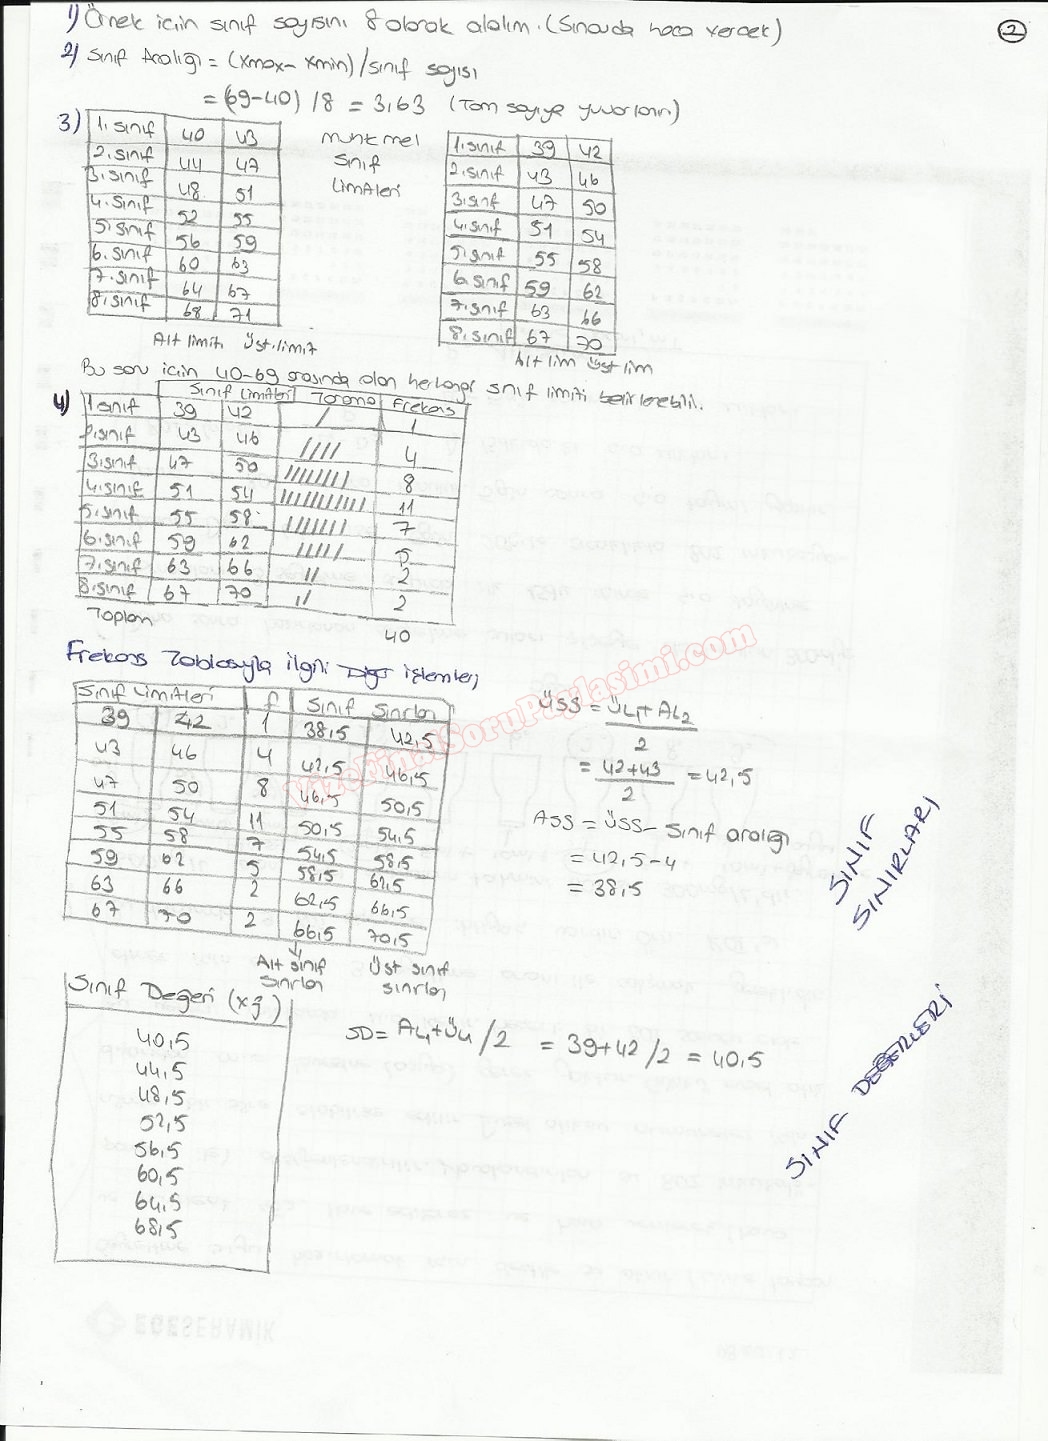 1) Örnek için sınıf sayısını 8 olarak alalım. (Sınavda hoca verecek)
2
2) Sınıf Aralığı = (xmax - xmin) / sınıf sayısı
= (69-40) / 8 = 3,63 (Tam sayıya yuvarlanır)
3)
1. sınıf 40 43
2. sınıf 44 47
3. sınıf 48 51
4. sınıf 52 55
5. sınıf 56 59
6. sınıf 60 63
7. sınıf 64 67
8. sınıf 68 71
Alt limit Üst. limit
muhtemel
sınıf
limitleri
1. sınıf 39 42
2. sınıf 43 46
3. sınıf 47 50
4. sınıf 51 54
5. sınıf 55 58
6. sınıf 59 62
7. sınıf 63 66
8. sınıf 67 70
Alt lim Üst lim
Bu soru için 40-69 arasında olan herhangi sınıf limiti belirlenebilir.
4)
Sınıf Limitleri Tarama Frekans
1 sınıf 39 42 / 1
2. sınıf 43 46 //// 4
3. sınıf 47 50 //////// 8
4. sınıf 51 54 /////////// 11
5. sınıf 55 58 /////// 7
6. sınıf 59 62 ///// 5
7. sınıf 63 66 // 2
8. sınıf 67 70 // 2
Toplam 40
Frekans Tablosuyla ilgili Diğer işlemler;
Sınıf Limitleri f Sınıf Sınırları
39 42 1 38,5 42,5
43 46 4 42,5 46,5
47 50 8 46,5 50,5
51 54 11 50,5 54,5
55 58 7 54,5 58,5
59 62 5 58,5 62,5
63 66 2 62,5 66,5
67 70 2 66,5 70,5
Alt sınıf sınırları
Üst sınıf sınırları
ÜSS = ÜL1 + AL2 / 2
= 42+43 / 2 = 42,5
ASS = ÜSS - Sınıf aralığı
= 42,5 - 4
= 38,5
SINIF
SINIRLARI
Sınıf Değeri (xj)
40,5
44,5
48,5
52,5
56,5
60,5
64,5
68,5
SD = AL1 + ÜL1 / 2 = 39+42 / 2 = 40,5
SINIF DEĞERLERİ
VizeFinalSoruPaylasimi.com